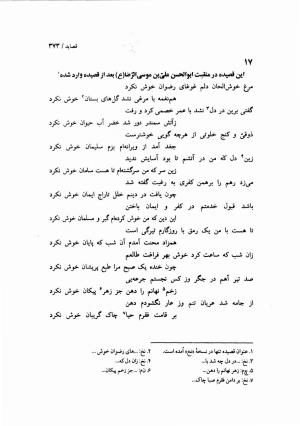 قصاید/ ۳۷۳
۱۷
این قصیده در منقبت ابوالحسن علی‌بن موسی‌الرّضا(ع) بعد از قصیده وارد شده¹
مرغ خوش‌الحان دلم غوغای رضوان خوش نکرد
هم‌نغمه با مرغی نشد گل‌های بستان² خوش نکرد
گفتی برین در دل³ نشد با عمر خصمی کرد و رفت
ز آتش سمندر دور شد خضر آب حیوان خوش نکرد
ذوقیّ و کنج خلوتی از هرچه گویی خوشترست
جغد آمد از ویرانه‌ام بزم سلیمان خوش نکرد
زین⁴ دل که من در آتشم تا بود آسایش ندید
زین سر که من سرگشته‌ام تا هست سامان خوش نکرد
می‌زد رهم را برهمن کفری به رغبت گفته شد
چون یافت در دینم خلل تاراج ایمان خوش نکرد
باشد قبول خدمتم در کفر و ایمان باختن
این دین که من خوش کرده‌ام گبر و مسلمان خوش نکرد
تا هست با من یک رمق با روزگارم تیرگی است
همزاد محنت آمدم آن شب که پایان خوش نکرد
زان شب که ساعت کرد خوش بهر فراقت طالعم
چون خنده یک صبح مرا طبع پریشان خوش نکرد
صد تیر آهم در جگر وز کس نجستم جرعه‌یی
زخم⁵ نهانم را دهن جز زهر⁶ پیکان خوش نکرد
از جامه شد عریان تنم وز عار نگشودم دهن
بر قامت فقرم حیا⁷ چاک گریبان خوش نکرد
۱. عنوان قصیده تنها در نسخهٔ «نج» آمده است.
۲. نج: ...های رضوان خوش ...
۳. نج: ...در دل چه شد با...
۴. نخ: زان دل که...
۵. چ‌م: زهر نهانم را دهن...
۶. ن‌م: ...جز زخم پیکان...
۷. نخ: بر دامن فقرم صبا چاک...